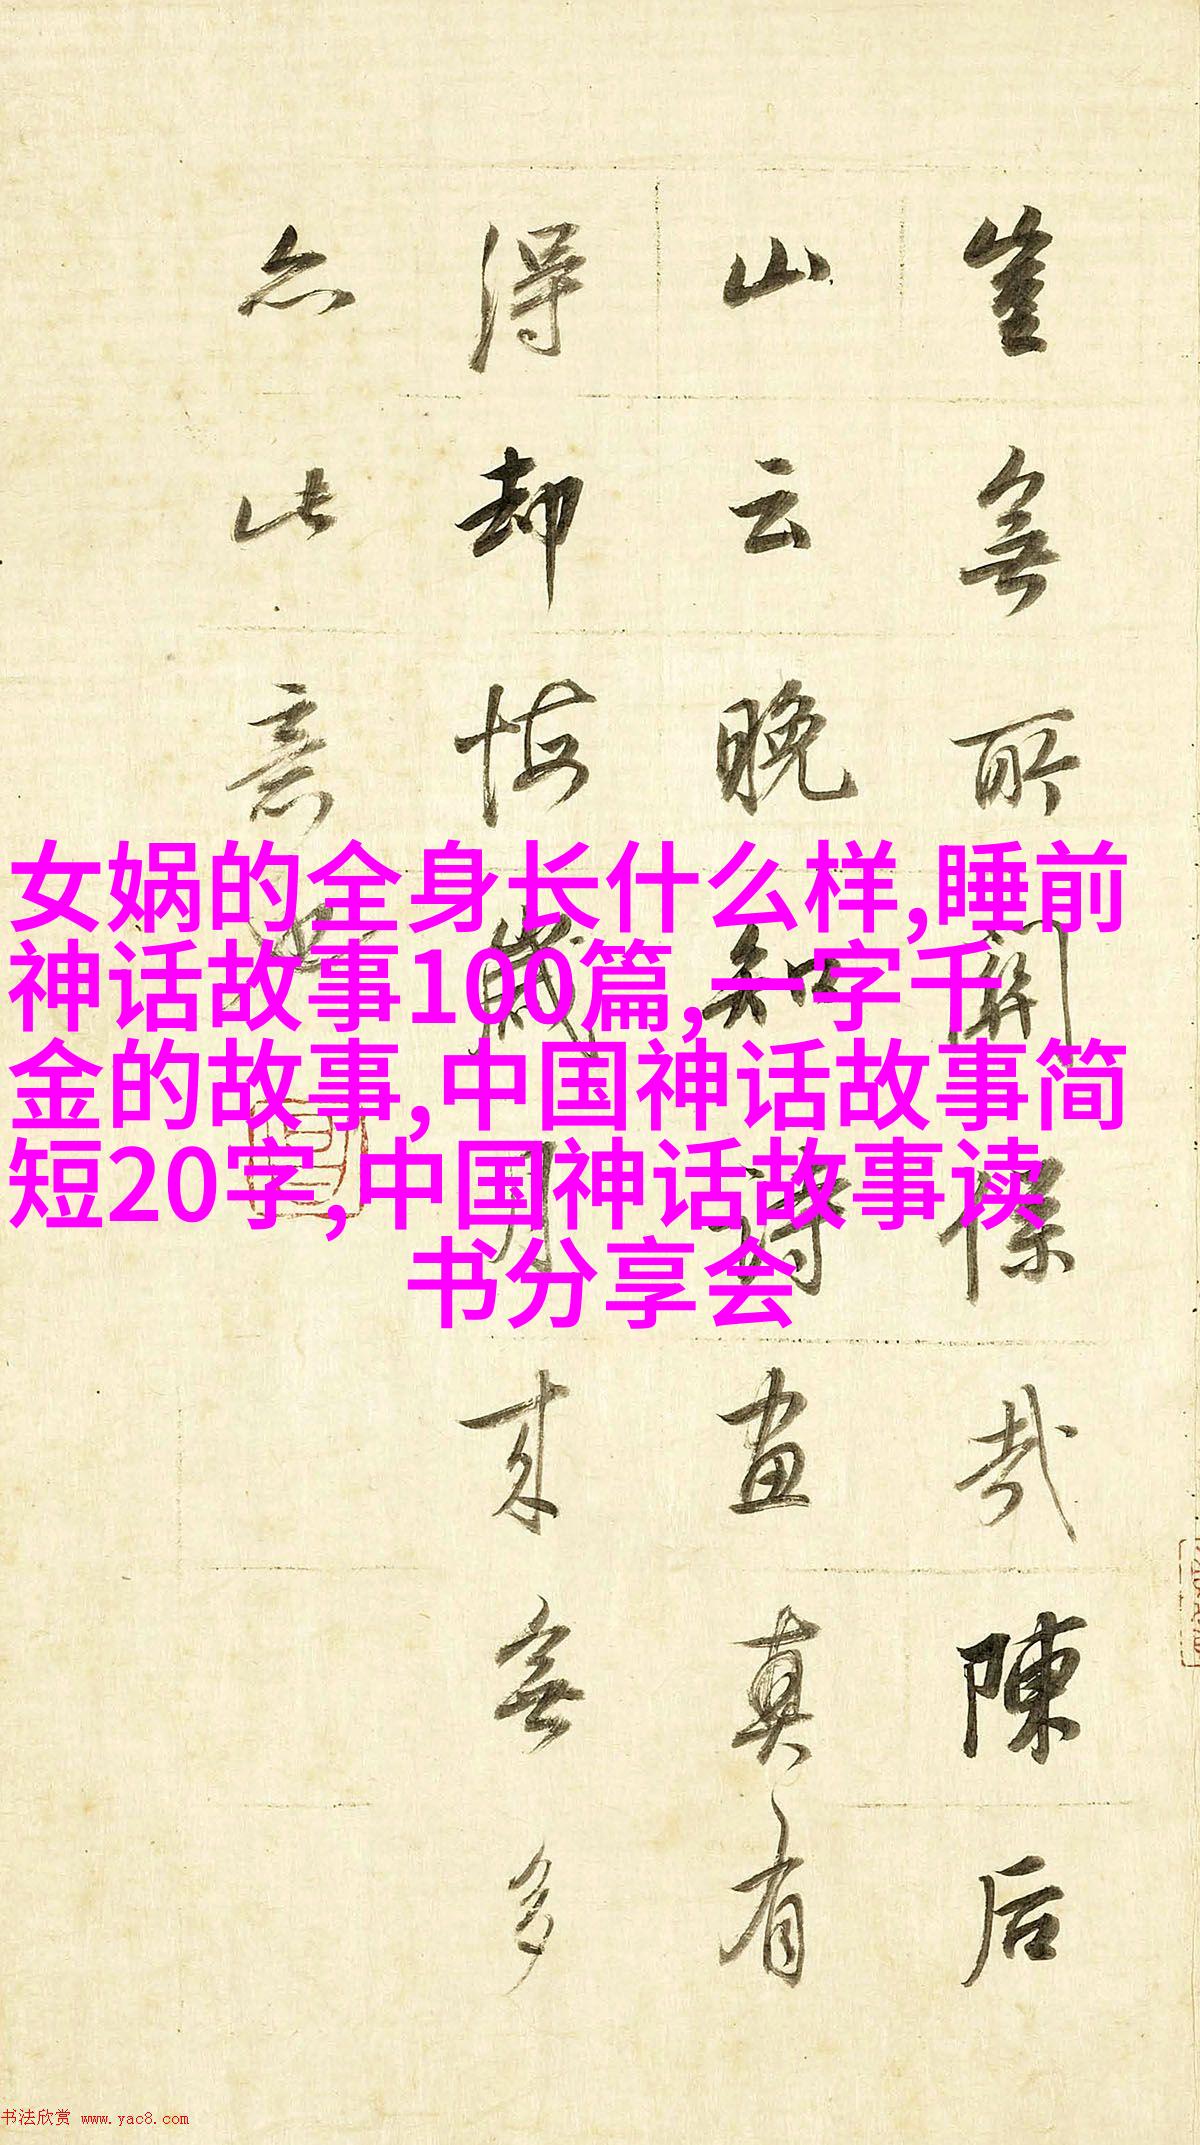 豈無所關係哉陳后
山云晚知詩畫真有
得却悔歲月來無多
亦此意
女娲的全身长什么样,睡前
神话故事100篇,一字千
金的故事,中国神话故事简
短20字,中国神话故事读
书分享会
书法欣赏 www.yac8.com